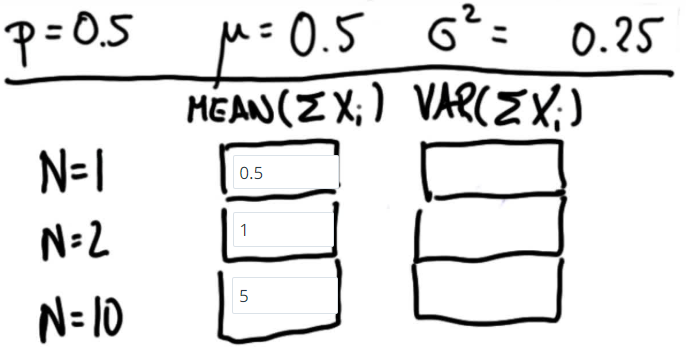 p = 0.5 μ = 0.5 σ² = 0.25
MEAN(Σ Xᵢ) VAR(Σ Xᵢ)
N=1 0.5
N=2 1
N=10 5